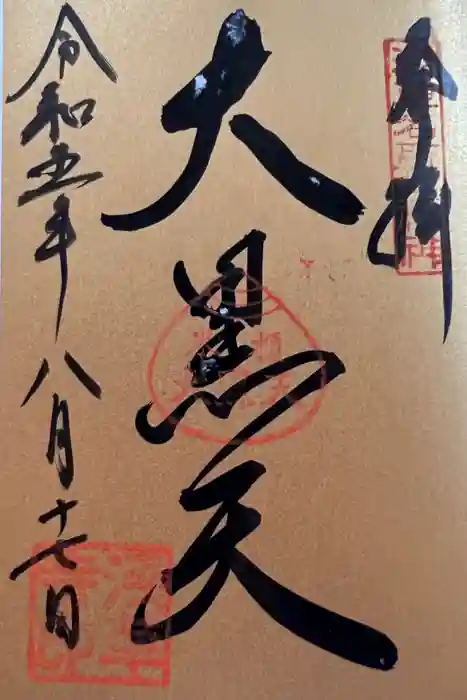 奉拝
大黒天
令和五年八月十七日